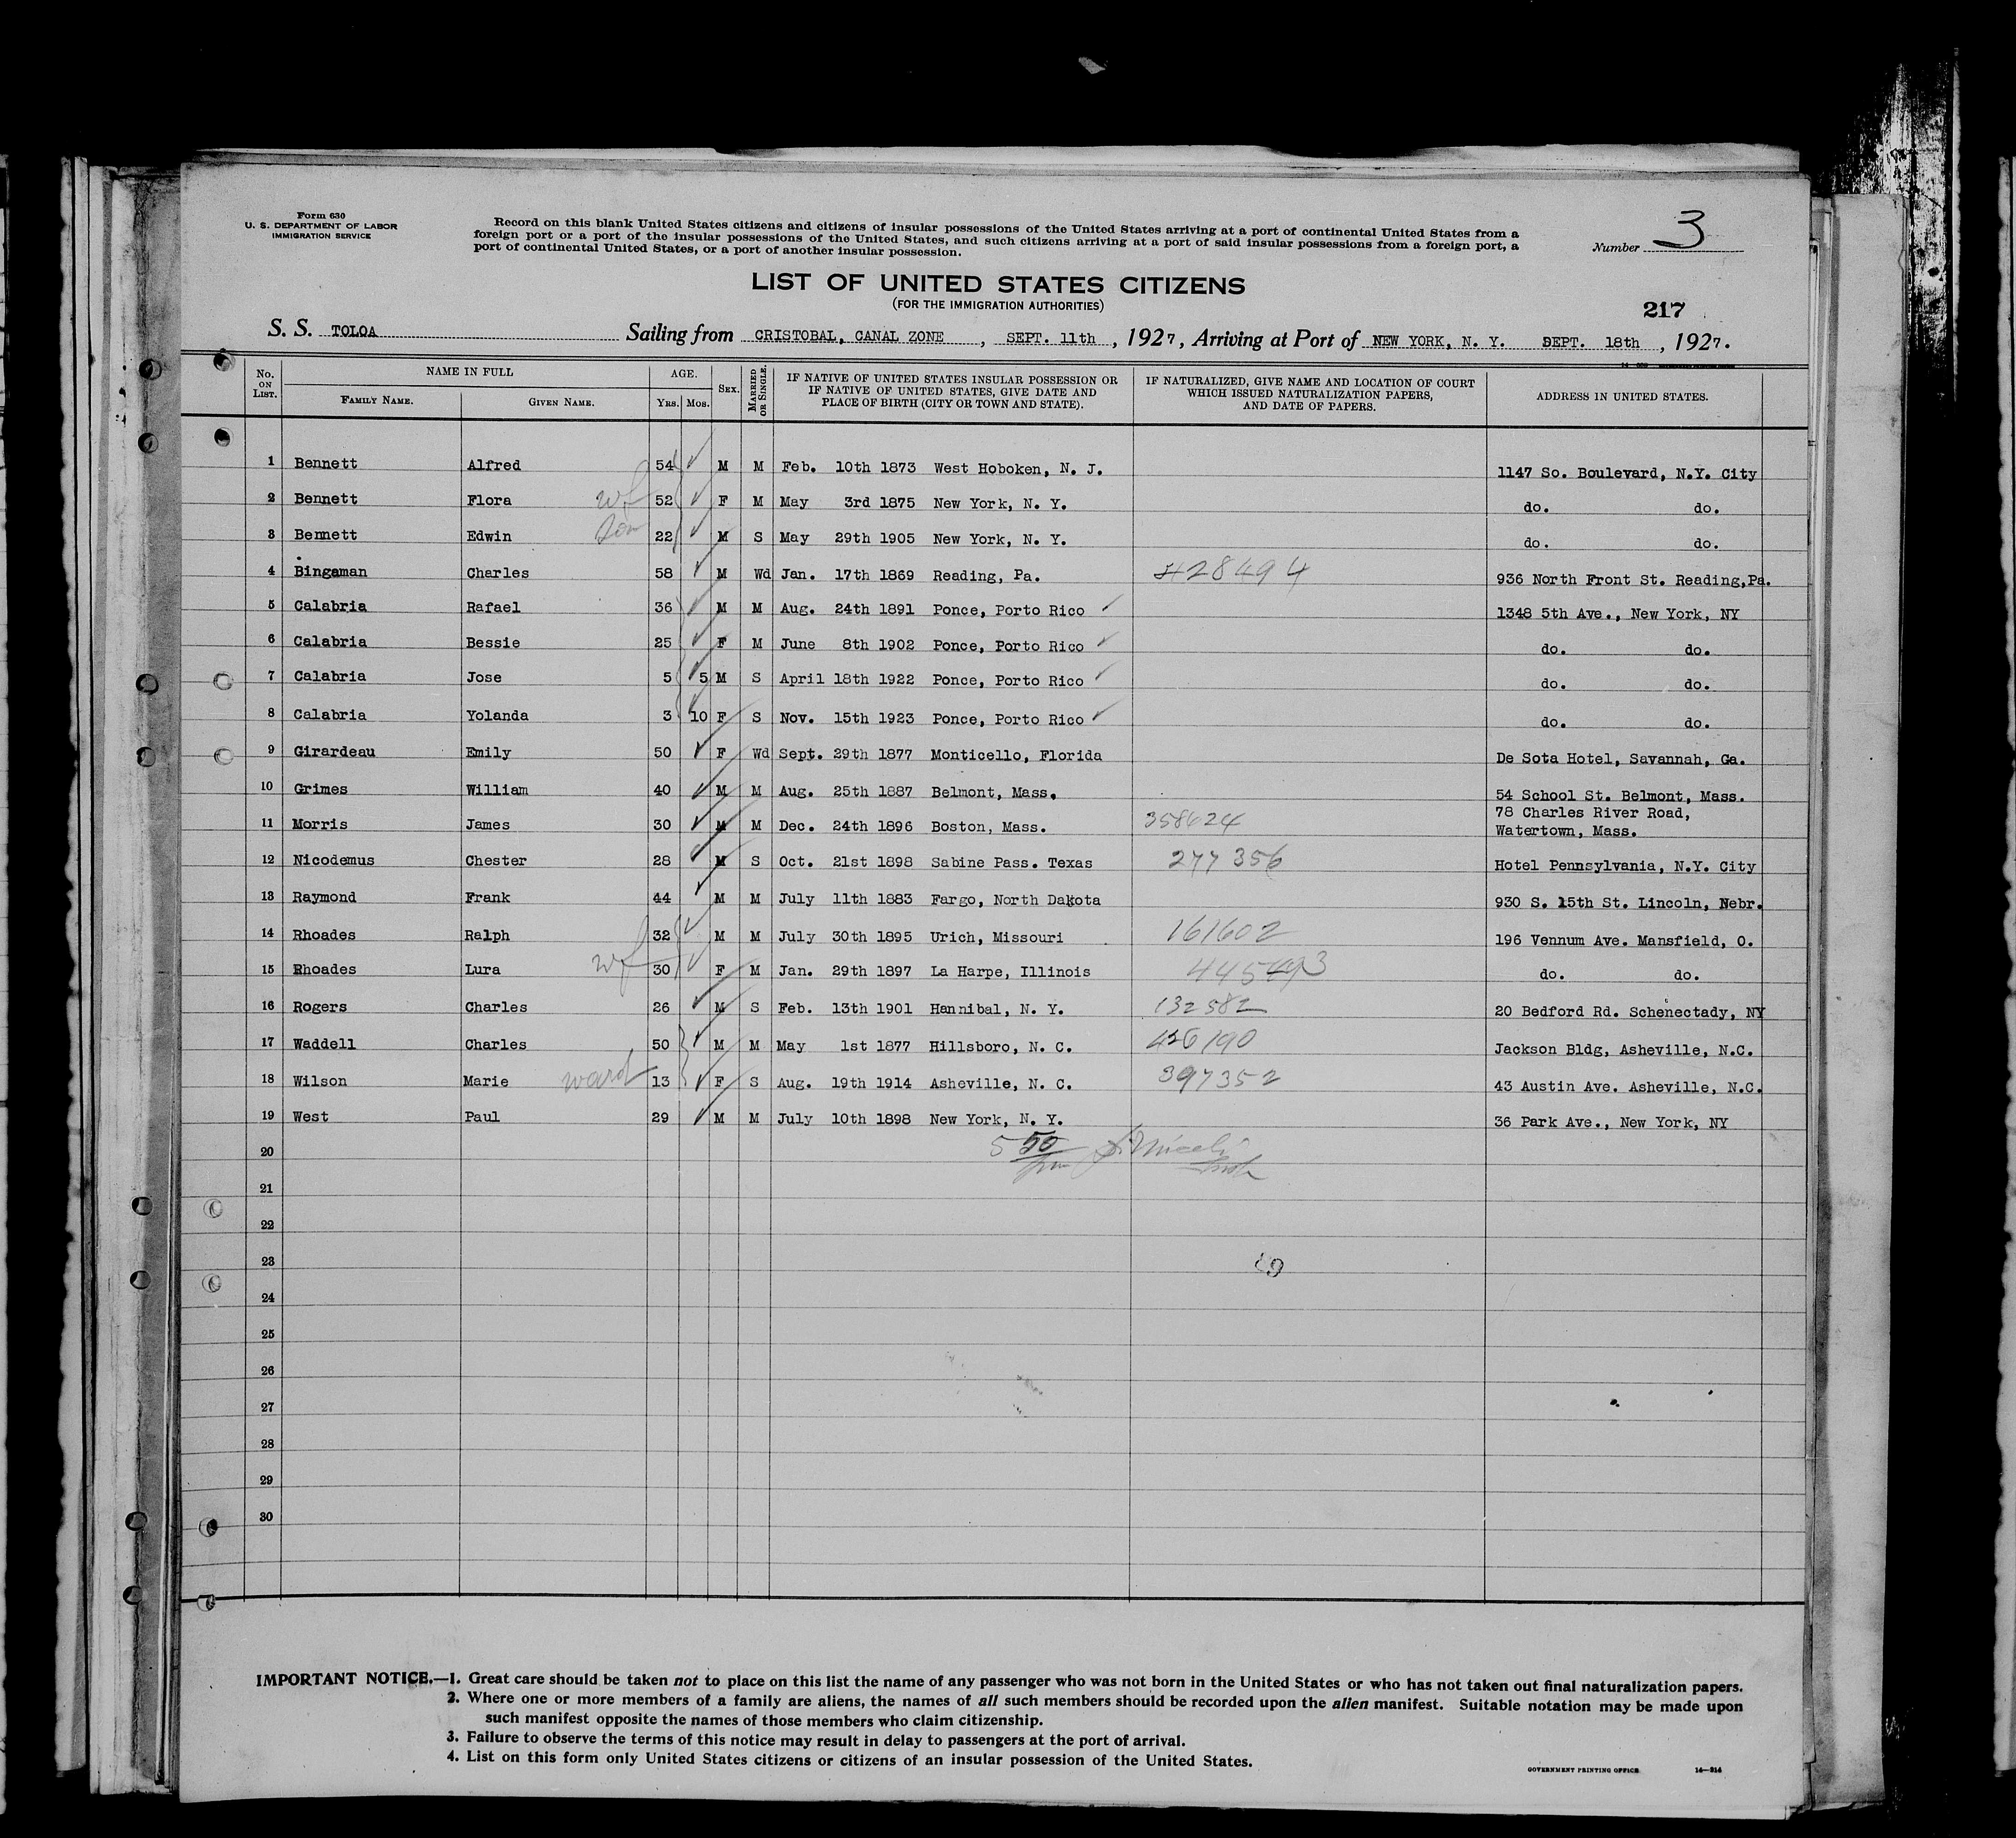 Form 630
U. S. DEPARTMENT OF LABOR
IMMIGRATION SERVICE
Record on this blank United States citizens and citizens of insular possessions of the United States arriving at a port of continental United States from a
foreign port or a port of the insular possessions of the United States, and such citizens arriving at a port of said insular possessions from a foreign port, a
port of continental United States, or a port of another insular possession.
Number 3
LIST OF UNITED STATES CITIZENS
(FOR THE IMMIGRATION AUTHORITIES)
217
S. S. TOLOA Sailing from CRISTOBAL, CANAL ZONE , SEPT. 11th , 1927, Arriving at Port of NEW YORK, N. Y. SEPT. 18th , 1927.
No. ON LIST. NAME IN FULL FAMILY NAME. GIVEN NAME. AGE. YRS. MOS. SEX. MARRIED OR SINGLE. IF NATIVE OF UNITED STATES INSULAR POSSESSION OR IF NATIVE OF UNITED STATES, GIVE DATE AND PLACE OF BIRTH (CITY OR TOWN AND STATE). IF NATURALIZED, GIVE NAME AND LOCATION OF COURT WHICH ISSUED NATURALIZATION PAPERS, AND DATE OF PAPERS. ADDRESS IN UNITED STATES.
1 Bennett Alfred 54 M M Feb. 10th 1873 West Hoboken, N. J. 1147 So. Boulevard, N.Y. City
2 Bennett Flora wf 52 F M May 3rd 1875 New York, N. Y. do. do.
3 Bennett Edwin son 22 M S May 29th 1905 New York, N. Y. do. do.
4 Bingaman Charles 58 M Wd Jan. 17th 1869 Reading, Pa. 428494 936 North Front St. Reading,Pa.
5 Calabria Rafael 36 M M Aug. 24th 1891 Ponce, Porto Rico 1348 5th Ave., New York, NY
6 Calabria Bessie 25 F M June 8th 1902 Ponce, Porto Rico do. do.
7 Calabria Jose 5 5 M S April 18th 1922 Ponce, Porto Rico do. do.
8 Calabria Yolanda 3 10 F S Nov. 15th 1923 Ponce, Porto Rico do. do.
9 Girardeau Emily 50 F Wd Sept. 29th 1877 Monticello, Florida De Sota Hotel, Savannah, Ga.
10 Grimes William 40 M M Aug. 25th 1887 Belmont, Mass. 54 School St. Belmont, Mass.
11 Morris James 30 M M Dec. 24th 1896 Boston, Mass. 358624 78 Charles River Road, Watertown, Mass.
12 Nicodemus Chester 28 M S Oct. 21st 1898 Sabine Pass. Texas 277 356 Hotel Pennsylvania, N.Y. City
13 Raymond Frank 44 M M July 11th 1883 Fargo, North Dakota 930 S. 15th St. Lincoln, Nebr.
14 Rhoades Ralph 32 M M July 30th 1895 Urich, Missouri 161602 196 Vennum Ave. Mansfield, O.
15 Rhoades Lura wf 30 F M Jan. 29th 1897 La Harpe, Illinois do. do.
16 Rogers Charles 26 M S Feb. 13th 1901 Hannibal, N. Y. 132582 20 Bedford Rd. Schenectady, NY
17 Waddell Charles 50 M M May 1st 1877 Hillsboro, N. C. 426190 Jackson Bldg, Asheville, N.C.
18 Wilson Marie ward 13 F S Aug. 19th 1914 Asheville, N. C. 397352 43 Austin Ave. Asheville, N.C.
19 West Paul 29 M M July 10th 1898 New York, N. Y. 36 Park Ave., New York, NY
20 5 50
21
22
23
24
25
26
27
28
29
30
IMPORTANT NOTICE.—1. Great care should be taken not to place on this list the name of any passenger who was not born in the United States or who has not taken out final naturalization papers.
2. Where one or more members of a family are aliens, the names of all such members should be recorded upon the alien manifest. Suitable notation may be made upon
such manifest opposite the names of those members who claim citizenship.
3. Failure to observe the terms of this notice may result in delay to passengers at the port of arrival.
4. List on this form only United States citizens or citizens of an insular possession of the United States.
GOVERNMENT PRINTING OFFICE 14—314